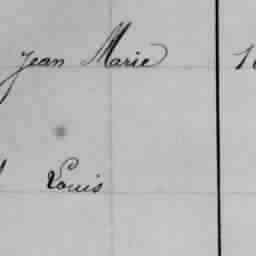 Jean Marie
Louis